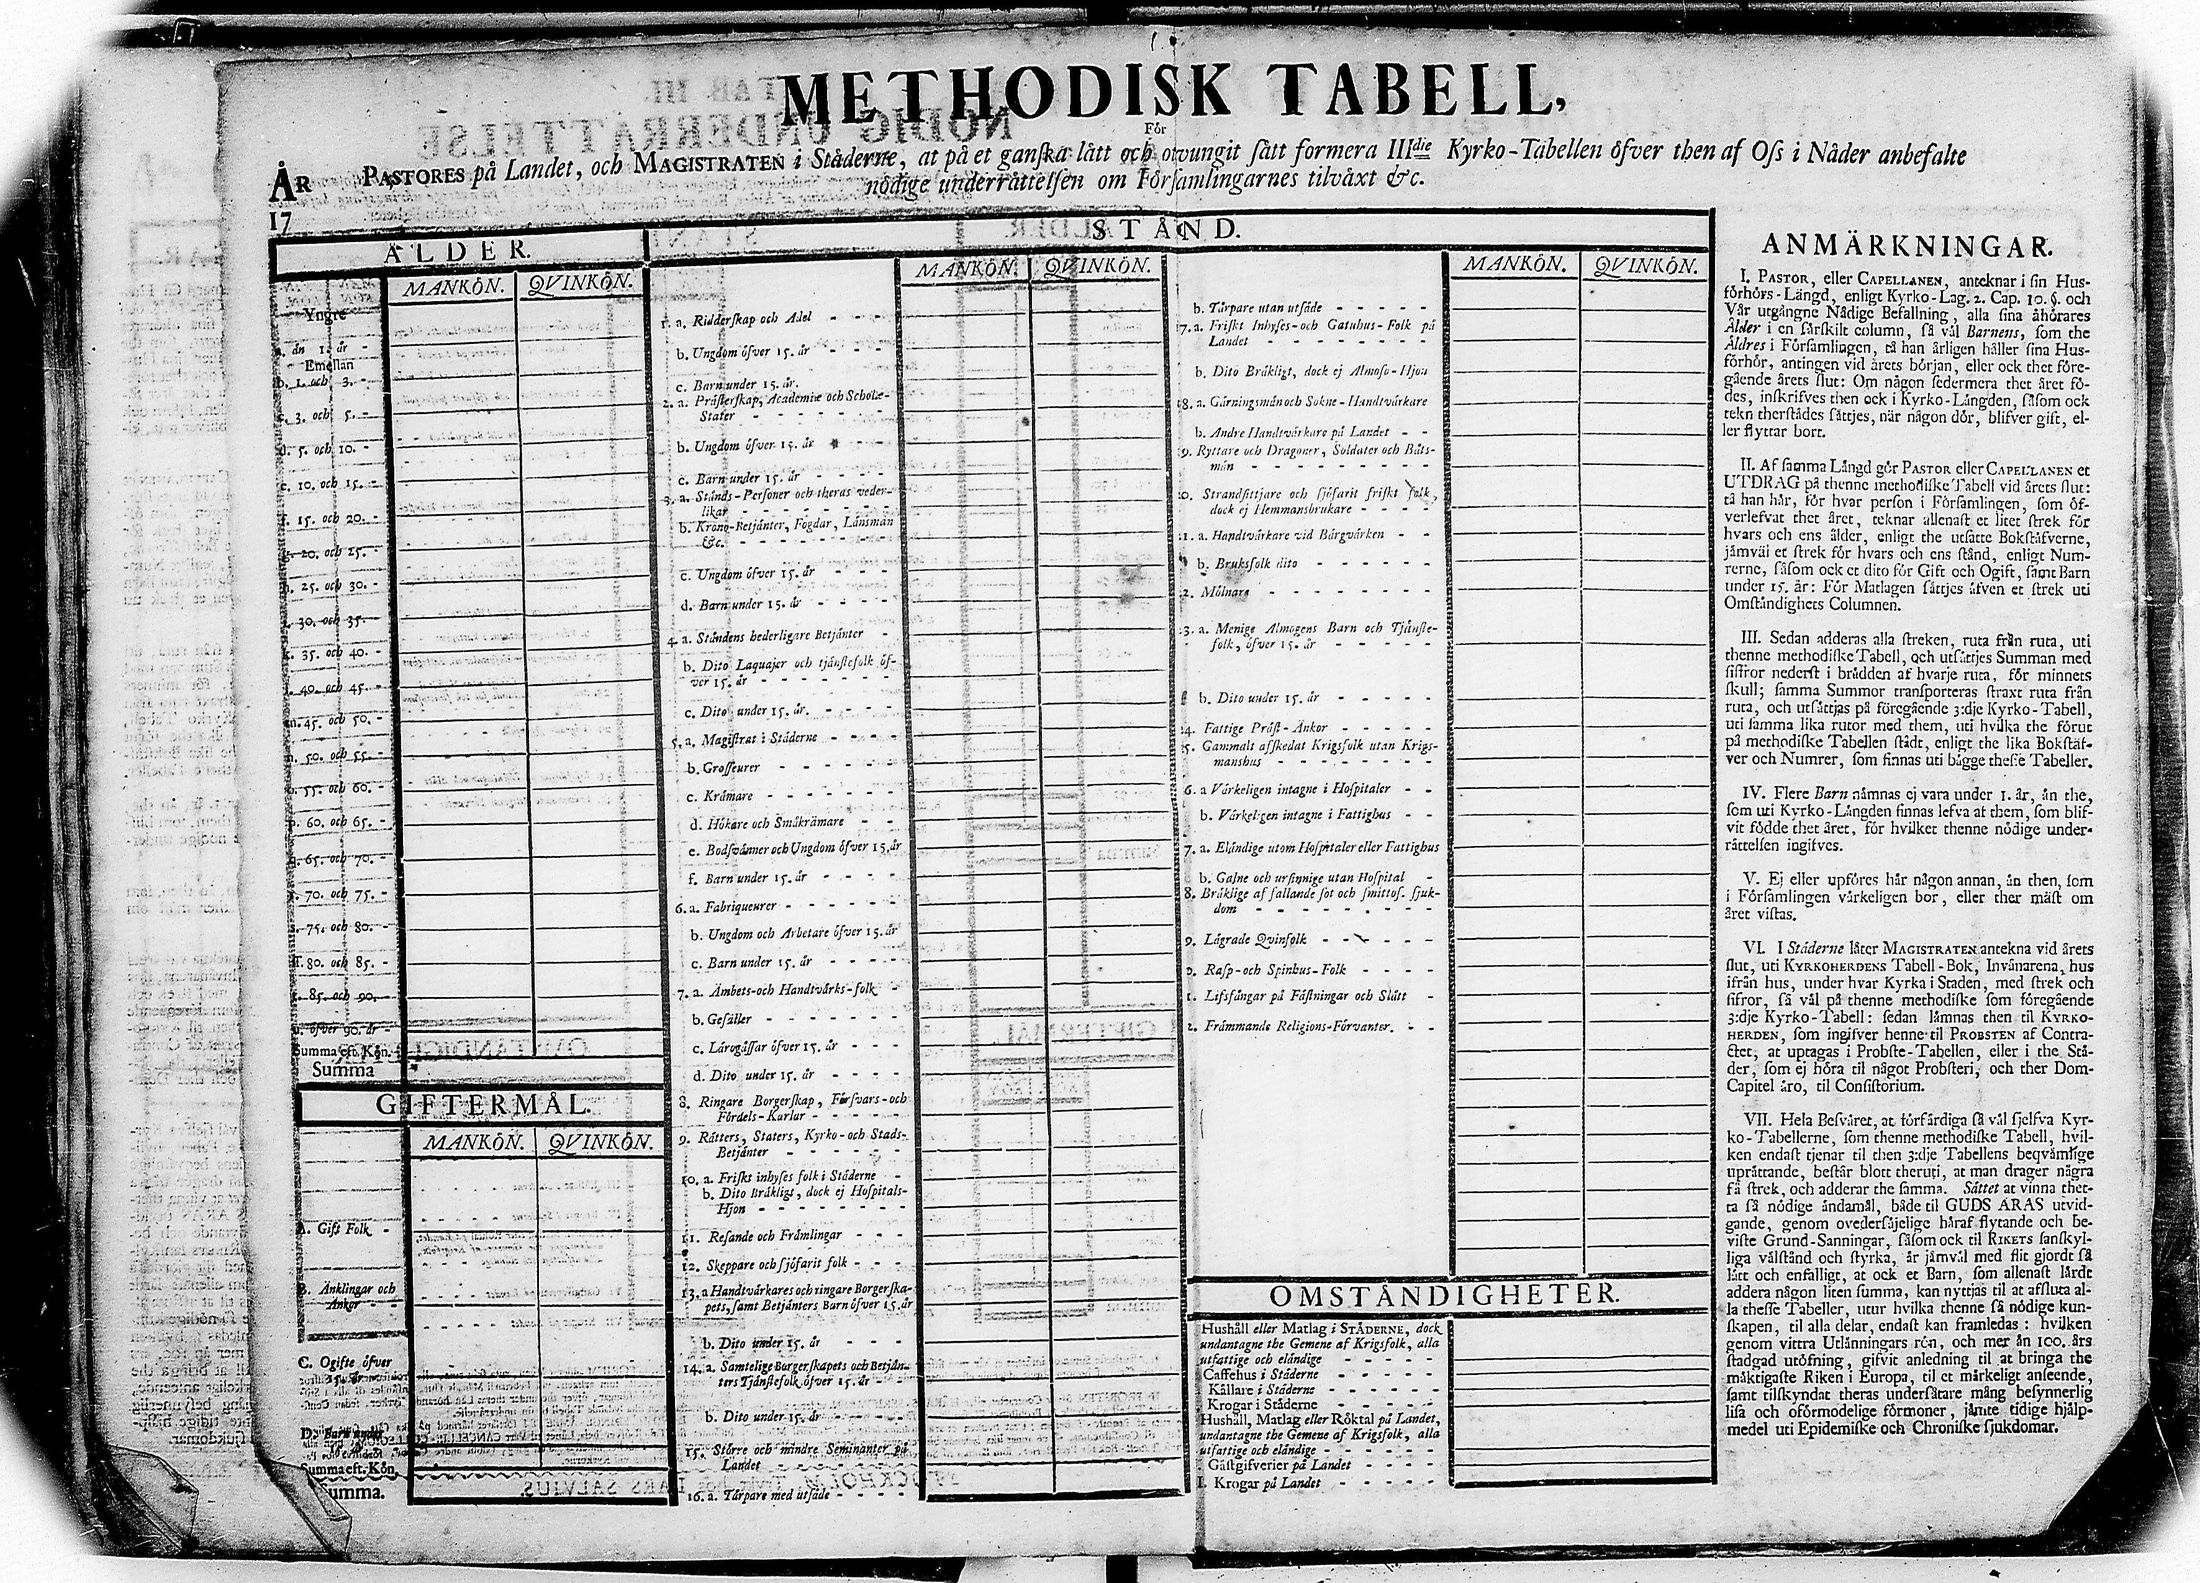 METHODISK TABELL,
För
PASTORES på Landet, och MAGISTRATEN i Ståderne, at på et ganſka lått och otvungit ſått formera IIIdie Kyrko-Tabellen ôfver then af Oſs i Nåder anbefalte
nôdige underråttelſen om Fôrſamlingarnes tilvåxt &c.
ÅR
17
ÅLDER.
MANKÔN. QVINKÔN.
Yngre
a. ån 1. år -
Emellan
b. 1. och 3. -
c. 3. och 5. -
d. 5. och 10. -
e. 10. och 15. -
f. 15. och 20. -
g. 20. och 25. -
h. 25. och 30. -
i. 30. och 35. -
k. 35. och 40. -
l. 40. och 45. -
m. 45. och 50. -
n. 50. och 55. -
o. 55. och 60. -
p. 60. och 65. -
q. 65. och 70. -
r. 70. och 75. -
s. 75. och 80. -
ſ. 80. och 85. -
t. 85. och 90. -
u. ôfver 90. år -
Summa eft. Kôn.
Summa
GIFTERMÅL.
MANKÔN. QVINKÔN.
A. Gift Folk -
B. Änklingar och
Ånkor - -
C. Ogifte ôfver
15. år
D. Barn under
Summa eft. Kôn.
Summa.
STÅND.
MANKÔN. QVINKÔN.
1. a. Ridderſkap och Adel - - -
b. Ungdom ôfver 15. år - - -
c. Barn under 15. år.
2. a. Pråſterſkap, Academiæ och Scholæ-
Stater - - - - - -
b. Ungdom ôfver 15. år - - -
c. Barn under 15. år - - - -
3. a. Stånds-Perſoner och theras veder-
likar - - - - - - - -
b. Krono-Betjånter, Fogdar, Lånsmån
&c. - - - - - - - -
c. Ungdom ôfver 15. år - - - -
d. Barn under 15. år - - - -
4. a. Ståndens hederligare Betjånter -
b. Dito Laquajer och tjånſtefolk ôf-
ver 15. år - - - - - - -
c. Dito under 15. år. - - - -
5. a. Magiſtrat i Ståderne - - - -
b. Groſſeurer - - - - - -
c. Kråmare - - - - - - -
d. Hôkare och Småkråmare - -
e. Bodſvånner och Ungdom ôfver 15. år
f. Barn under 15. år - - - -
6. a. Fabriqueurer - - - - - -
b. Ungdom och Arbetare ôfver 15. år
c. Barn under 15. år - - - -
7. a. Åmbets-och Handtvårks-folk - -
b. Geſåller - - - - - - -
c. Lårogåſſar ôfver 15. år - - -
d. Dito under 15. år - - - -
8. Ringare Borgerſkap, Fôrſvars-och
Fôrdels-Karlar - - - - -
9. Råtters, Staters, Kyrko-och Stads-
Betjånter - - - - - -
10. a. Friſkt inhyſes folk i Ståderne -
b. Dito Bråkligt, dock ej Hoſpitals-
Hjon - - - - - - - -
11. Reſande och Fråmlingar - - -
12. Skeppare och ſjôfarit folk - - -
13. a Handtvårkares och ringare Borgerſka-
pets, ſamt Betjånters Barn ôfver 15. år
b. Dito under 15. år - - - -
14. a. Samtelige Borgerſkapets och Betjån-
ters Tjånſtefolk ôfver 15. år - -
b. Dito under 15. år - - - -
15. Stôrre och mindre Seminanter på
Landet - - - - - - -
16. a. Tårpare med utſåde - - - -
MANKÔN. QVINKÔN.
b. Tårpare utan utſåde - - - - -
17. a. Friſkt Inhyſes-och Gatuhus-Folk på
Landet - - - - - - - -
b. Dito Bråkligt, dock ej Almoſo-Hjon
18. a. Gårningsmån och Sokne-Handtvårkare
b. Andre Handtvårkare på Landet - -
9. Ryttare och Dragoner, Soldater och Båts-
mån - - - - - - - - -
20. Strandſittjare och ſjôfarit friſkt folk,
dock ej Hemmansbrukare - - - -
21. a. Handtvårkare vid Bårgvårken - -
b. Bruksfolk dito - - - - - -
2. Môlnare - - - - - - - -
23. a. Menige Almogens Barn och Tjånſte-
folk, ôfver 15. år - - - - -
b. Dito under 15. år - - - - -
24. Fattige Pråſt-Ånkor - - - - -
5. Gammalt afſkedat Krigsfolk utan Krigs-
manshus - - - - - - - -
6. a Vårkeligen intagne i Hoſpitaler - -
b. Vårkeligen intagne i Fattighus - -
7. a. Elåndige utom Hoſpitaler eller Fattighus
b. Galne och urſinnige utan Hoſpital -
8. Bråklige af fallande ſot och ſmittoſ. ſjuk-
dom - - - - - - - - -
9. Lågrade Qvinfolk - - - - -
0. Raſp-och Spinhus-Folk - - - -
1. Lifsfångar på Fåſtningar och Slått -
2. Fråmmande Religions-Fôrvanter. - -
OMSTÅNDIGHETER.
Hushåll eller Matlag i STÅDERNE, dock
undantagne the Gemene af Krigsfolk, alla
utfattige och elåndige - - - - -
Caffehus i Ståderne - - - - -
Kållare i Ståderne - - - - -
Krogar i Ståderne - - - - -
Hushåll, Matlag eller Rôktal på Landet,
undantagne the Gemene af Krigsfolk, alla
utfattige och elåndige - - - - -
Gåſtgifverier på Landet - - - -
Krogar på Landet - - - - -
ANMÄRKNINGAR.
I. PASTOR, eller CAPELLANEN, anteknar i ſin Hus-
fôrhôrs-Långd, enligt Kyrko-Lag. 2. Cap. 10. §. och
Vår utgångne Nådige Befallning, alla ſina åhôrares
Ålder i en ſårſkilt column, ſå vål Barnens, ſom the
Åldres i Fôrſamlingen, tå han årligen håller ſina Hus-
fôrhôr, antingen vid årets bôrjan, eller ock thet fôre-
gående årets ſlut: Om någon ſedermera thet året fô-
des, inſkrifves then ock i Kyrko-Långden, ſåſom ock
tekn therſtådes ſåttjes, når någon dôr, blifver gift, el-
ler flyttar bort.
II. Af ſamma Långd gôr PASTOR eller CAPELLANEN et
UTDRAG på thenne methodiſke Tabell vid årets ſlut:
tå han hår, fôr hvar perſon i Fôrſamlingen, ſom ôf-
verlefvat thet året, teknar allenaſt et litet ſtrek fôr
hvars och ens ålder, enligt the utſatte Bokſtåfverne,
jåmvål et ſtrek fôr hvars och ens ſtånd, enligt Num-
rerne, ſåſom ock et dito fôr Gift och Ogift, ſamt Barn
under 15. år: Fôr Matlagen ſåttjes åfven et ſtrek uti
Omſtåndighets Columnen.
III. Sedan adderas alla ſtreken, ruta från ruta, uti
thenne methodiſke Tabell, och utſåttjes Summan med
ſiffror nederſt i brådden af hvarje ruta, fôr minnets
ſkull; ſamma Summor transporteras ſtraxt ruta från
ruta, och utſåttjas på fôregående 3:dje Kyrko-Tabell,
uti ſamma lika rutor med them, uti hvilka the fôrut
på methodiſke Tabellen ſtådt, enligt the lika Bokſtåf-
ver och Numrer, ſom finnas uti bågge theſſe Tabeller.
IV. Flere Barn nåmnas ej vara under 1. år, ån the,
ſom uti Kyrko-Långden finnas lefva af them, ſom blif-
vit fôdde thet året, fôr hvilket thenne nôdige under-
råttelſen ingifves.
V. Ej eller upfôres hår någon annan, ån then, ſom
i Fôrſamlingen vårkeligen bor, eller ther måſt om
året viſtas.
VI. I Ståderne låter MAGISTRATEN antekna vid årets
ſlut, uti KYRKOHERDENS Tabell-Bok, Invånarena, hus
ifrån hus, under hvar Kyrka i Staden, med ſtrek och
ſifror, ſå vål på thenne methodiſke ſom fôregående
3:dje Kyrko-Tabell: ſedan låmnas then til KYRKO-
HERDEN, ſom ingifver henne til PROBSTEN af Contra-
ctet, at uptagas i Probſte-Tabellen, eller i the Stå-
der, ſom ej hôra til något Probſteri, och ther Dom-
Capitel åro, til Conſiſtorium.
VII. Hela Beſvåret, at fôrfårdiga ſå vål ſjelfva Kyr-
ko-Tabellerne, ſom thenne methodiſke Tabell, hvil-
ken endaſt tjenar til then 3:dje Tabellens beqvåmlige
upråttande, beſtår blott theruti, at man drager några
få ſtrek, och adderar the ſamma. Såttet at vinna thet-
ta ſå nôdige åndamål, både til GUDS ÅRAS utvid-
gande, genom ovederſåjelige håraf flytande och be-
viſte Grund-Sanningar, ſåſom ock til RIKETS ſanſkyl-
liga vålſtånd och ſtyrka, år jåmvål med flit gjordt ſå
lått och enfalligt, at ock et Barn, ſom allenaſt lårdt
addera någon liten ſumma, kan nyttjas til at affluta al-
la theſſe Tabeller, utur hvilka thenne ſå nôdige kun-
ſkapen, til alla delar, endaſt kan framledas: hvilken
genom vittra Utlånningars rôn, och mer ån 100. års
ſtadgad utôfning, gifvit anledning til at bringa the
måktigaſte Riken i Europa, til et mårkeligt anſeende,
ſamt tilſkyndat theras underſåtare mång beſynnerlig
liſa och ofôrmodelige fôrmoner, jåmte tidige hjålp-
medel uti Epidemiſke och Chroniſke ſjukdomar.